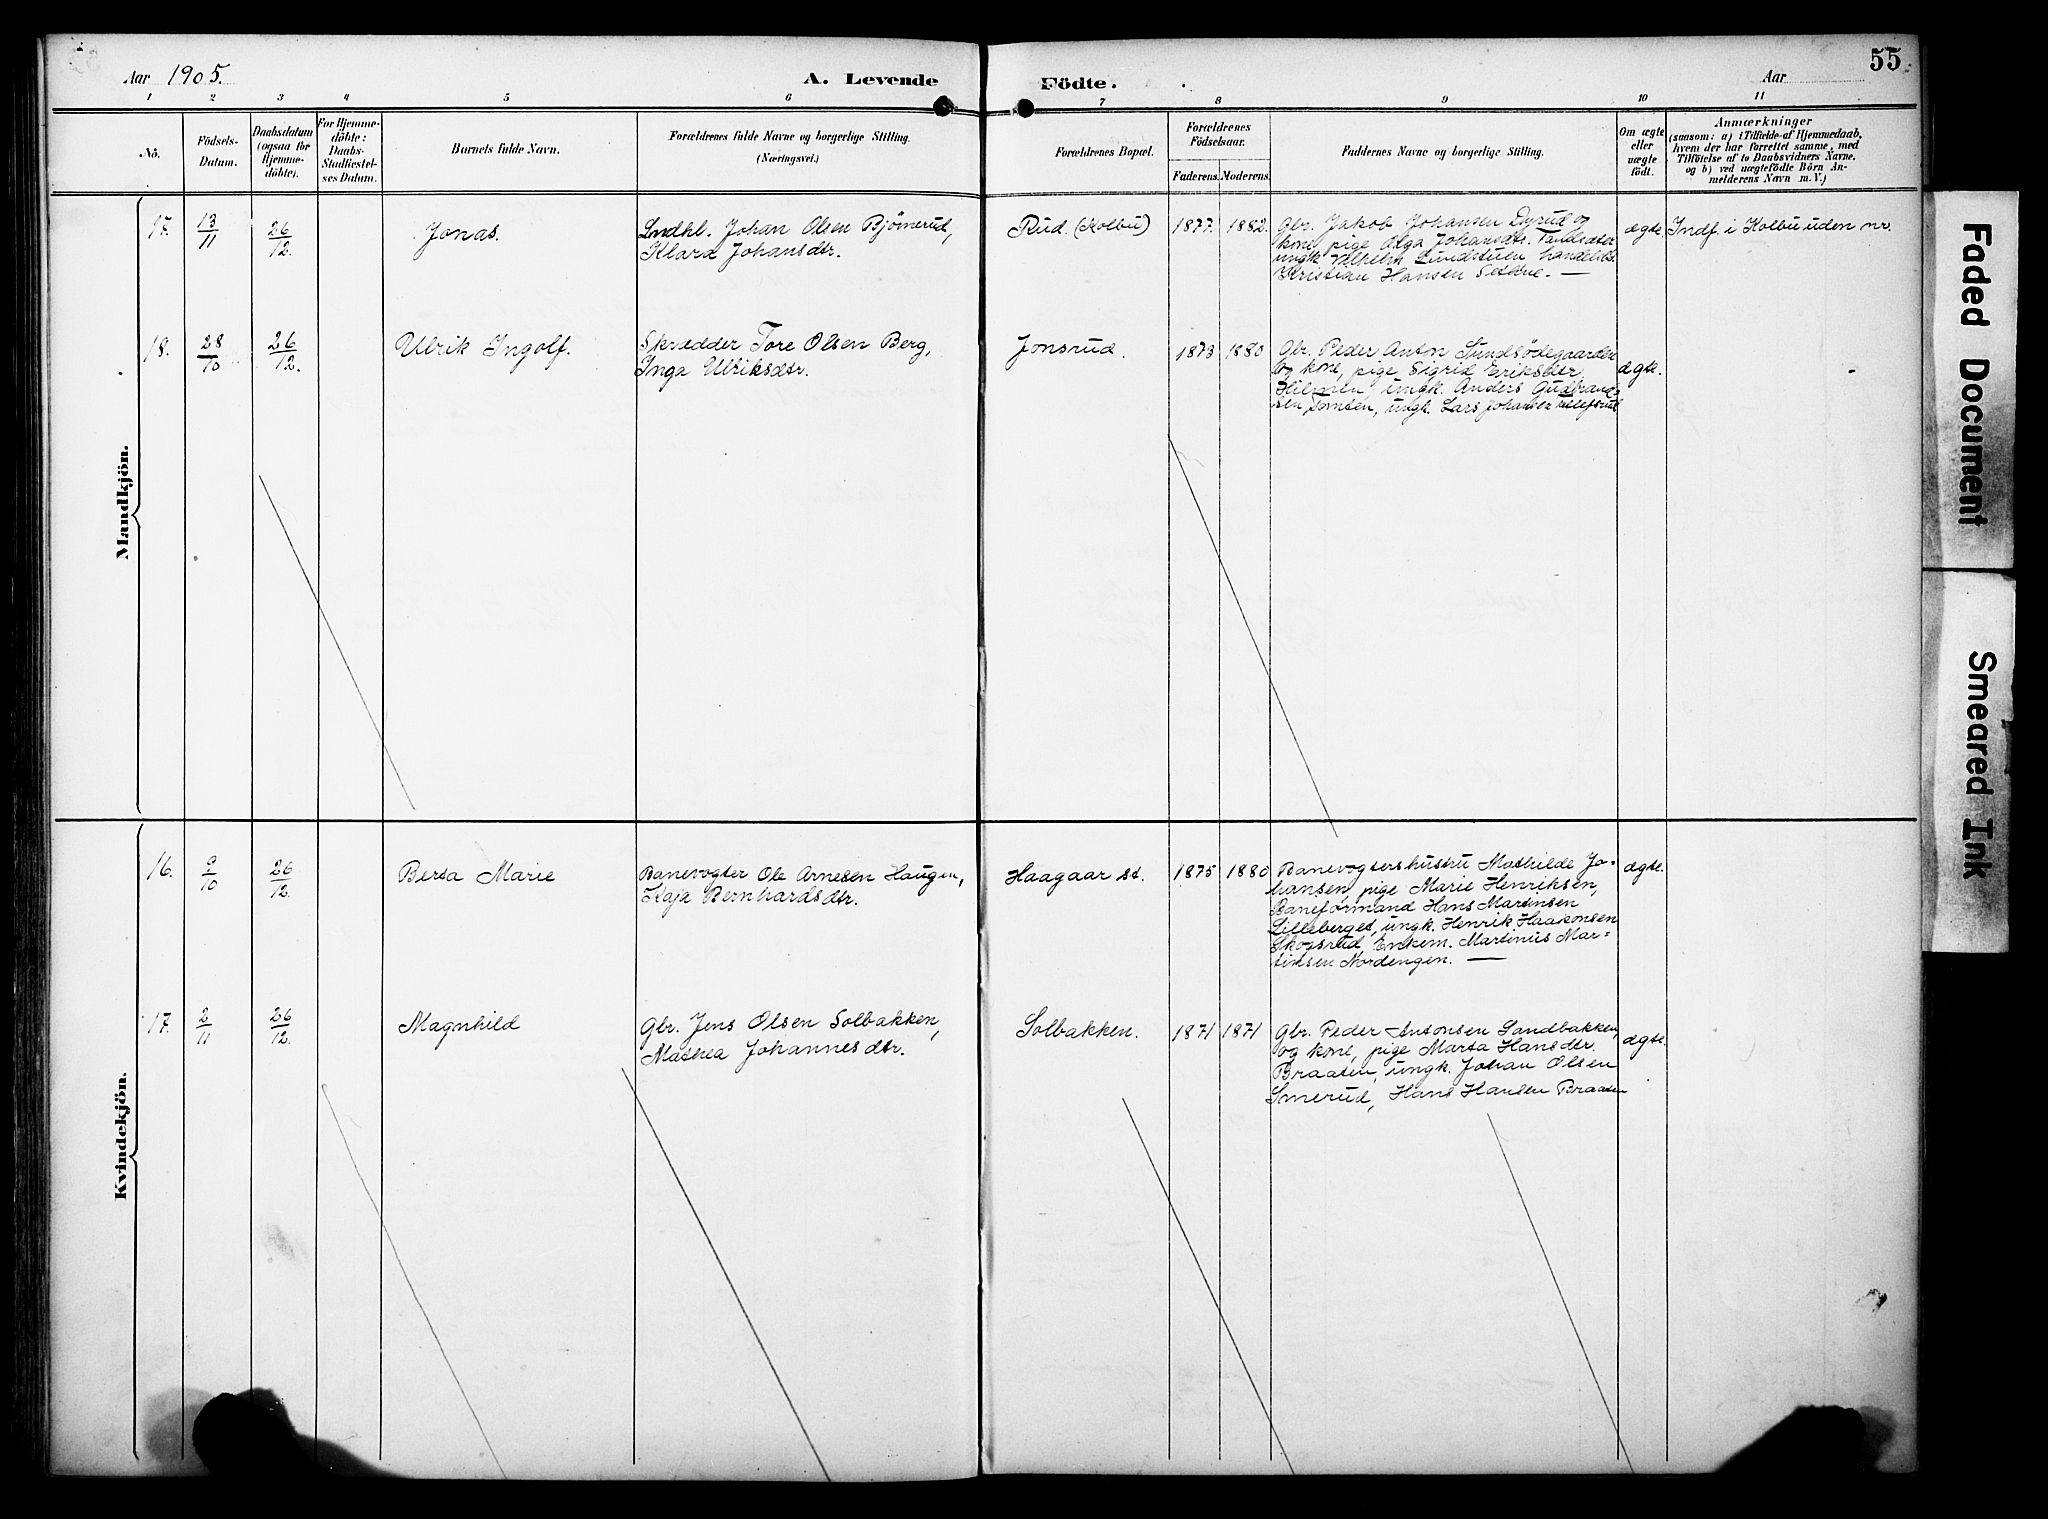 Aar 1905.
A. Levende Födte.
Aar
55
1 2 3 4 5 6 7 8 9 10 11
No.
Födsels-Datum.
Daabsdatum (ogsaa for Hjemme-döbte).
For Hjemme-döbte: Daabs-Stadfæstel-ses Datum.
Barnets fulde Navn.
Forældrenes fulde Navne og borgerlige Stilling.
(Næringsvei.)
Forældrenes Bopæl.
Forældrenes Födselsaar.
Faderens. Moderens.
Faddernes Navne og borgerlige Stilling.
Om ægte eller uægte födt.
Anmærkninger
(saasom: a) i Tilfælde af Hjemmedaab,
hvem der har forrettet samme, med
Tilföielse af to Daabsvidners Navne.
og b) ved uægtefödte Börn An-
melderens Navn m. V.)
Mandkjön.
17. 13/11 26/12. Jonas. Indhl. Johan Olsen Bjömerud,
Klara Johansdtr.
Rud. (Kolbu) 1877. 1882.
Gbr. Jakob Johansen Dyrud og
kone, pige Olga Johansdtr.
ungk. Vilhelm Lundstuen
Kristian Hansen Sethne. —
ægte. Indf. i Kolbu uden nr.
18. 28/10 26/12. Ulrik Ingolf. Skrædder Tore Olsen Berg,
Inga Ulriksdtr.
Jonsrud. 1873 1880
Gbr. Peder Anton Sundsödegaarden
og kone, pige Sigrid Eriksdtr.
Hilmen, ungk. Anders Gudbrand-
sen Tomten, ungk. Lars Johansen
ægte.
Kvindekjön.
16. 9/10 26/12. Berta Marie Banevogter Ole Arnesen Haugen,
Kaja Bernhardsdtr.
Haagaar st. 1875 1880
Banevogtershustru Mathilde Jo-
hansen, pige Marie Henriksen,
Baneformand Hans Martinsen
Lilleberget, ungk. Henrik Haakonsen
Skogsrud, Enkem. Martinus Mar=
tinsen Nordengen. —
ægte.
17. 2/11 26/12. Magnhild Gbr. Jens Olsen Solbakken,
Mathea Johannesdtr.
Solbakken. 1871 1871
Gbr. Peder Antonsen Sandbakken,
og kone, pige Marta Hansdtr.
Braaten, ungk. Johan Olsen
Smerud, Hans Hansen Braaten
ægte.
Faded Document
Smeared Ink